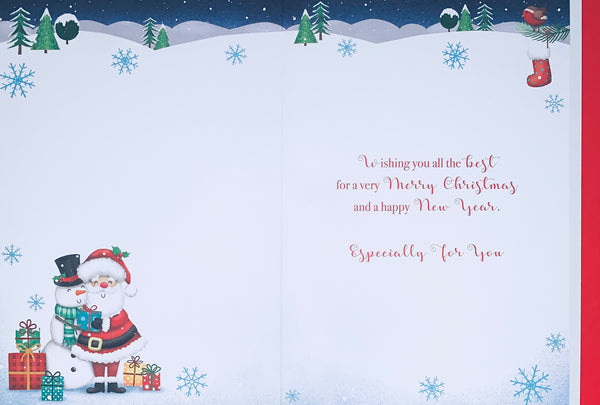 Wishing you all the best
for a very Merry Christmas
and a happy New Year.
Especially for You